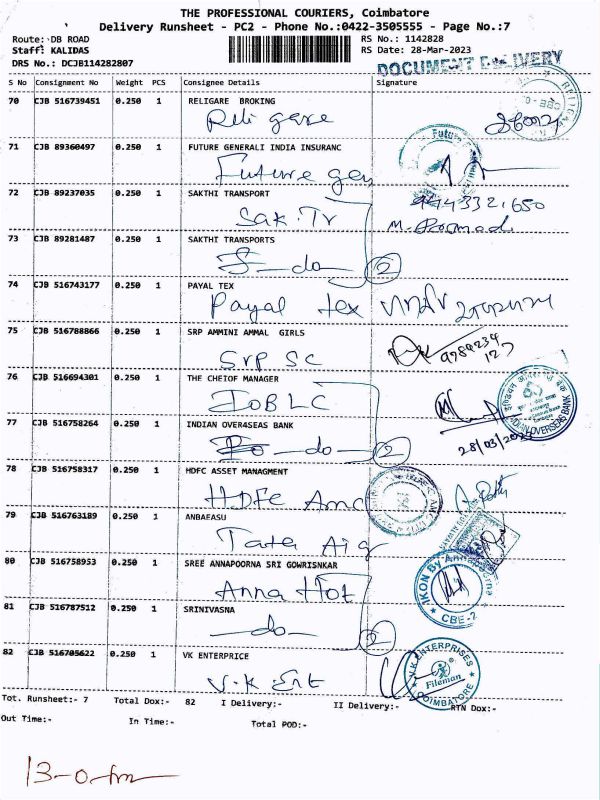 THE PROFESSIONAL COURIERS, Coimbatore
Delivery Runsheet - PC2 - Phone No.:0422-3505555 - Page No.:7
Route: DB ROAD RS No.: 1142828
Staff: KALIDAS RS Date: 28-Mar-2023
DRS No.: DCJB114282807
DOCUMENT DELIVERY
S No Consignment No Weight PCS Consignee Details Signature
70 CJB 516739451 0.250 1 RELIGARE BROKING
Religare
71 CJB 89360497 0.250 1 FUTURE GENERALI INDIA INSURANC
Future gen
72 CJB 89237035 0.250 1 SAKTHI TRANSPORT
Sak. Tr
73 CJB 89281487 0.250 1 SAKTHI TRANSPORTS
S-do- 2
74 CJB 516743177 0.250 1 PAYAL TEX
Payal tex
75 CJB 516788866 0.250 1 SRP AMMINI AMMAL GIRLS
Srp SC
76 CJB 516694301 0.250 1 THE CHEIOF MANAGER
IOB LC
INDIAN OVERSEAS BANK
77 CJB 516758264 0.250 1 INDIAN OVER4SEAS BANK
-do- 2
78 CJB 516758317 0.250 1 HDFC ASSET MANAGMENT
HDFC Amc
79 CJB 516763189 0.250 1 ANBAEASU
Tata Aig
80 CJB 516758953 0.250 1 SREE ANNAPOORNA SRI GOWRISNKAR
Anna Hot
IKON By Annapoorna
CBE-2
81 CJB 516787512 0.250 1 SRINIVASNA
-do- 2
82 CJB 516705622 0.250 1 VK ENTERPRICE
V.K Ent
V.K ENTERPRISES
Fileman
COIMBATORE
Tot. Runsheet:- 7 Total Dox:- 82 I Delivery:- II Delivery:- RTN Dox:-
Out Time:- In Time:- Total POD:-